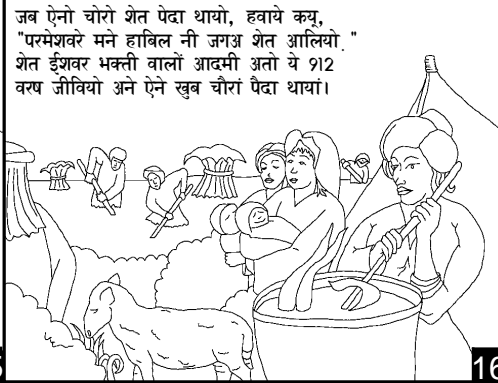 जब ऐनो चोरो शेत पेदा थायो, हवाये कयू,
"परमेशवरे मने हाबिल नी जगअ शेत आलियो."
शेत ईशवर भक्ती वालों आदमी अतो ये 912
वरष जीवियो अने ऐने खुब चौरां पैदा थायां।
16